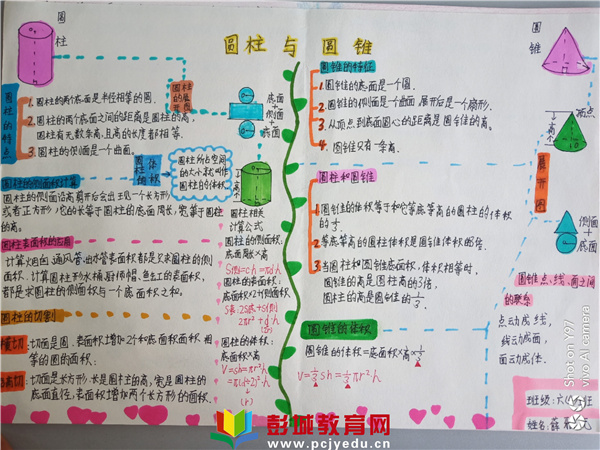 圆柱与圆锥
圆
柱
圆柱的特点
1. 圆柱的两个底面是半径相等的圆.
2. 圆柱的两个底面之间的距离是圆柱的高,
圆柱有无数条高,且高的长度都相等.
3. 圆柱的侧面是一个曲面.
圆柱的展开图
底面
+
侧面
+
底面
圆柱体积
圆柱所占空间
的大小就叫作
圆柱的体积
高
圆柱的侧面积计算
圆柱的侧面沿高剪开后会出现一个长方形
或者正方形,它的长等于圆柱的底面周长,宽等于圆柱
的高.
圆柱表面积的应用
计算烟囱、通风管、油漆管表面积都是求圆柱的侧
面积.计算圆柱形水桶、
都是求圆柱的侧面积与一个底面积之和.
圆柱的切割
横切:切面是圆.表面积增加2个和底面积面积相
等的圆的面积.
切面是长方形.长是圆柱的高,宽是圆柱的
底面直径,表面积增加两个长方形的面积.
圆柱相关
计算公式
圆柱的侧面积:
底面周长×高
S侧=ch=πdh
圆柱的表面积:
底面积×2+侧面积
圆柱的体积:
底面积×高
V=sh=πr²h
圆锥的特征
1. 圆锥的底面是一个圆.
2. 圆锥的侧面是一个曲面.展开后是一个扇形.
3. 从顶点到底面圆心的距离是圆锥的高.
4. 圆锥只有一条高.
圆柱和圆锥
1. 圆锥的体积等于和它等底等高的圆柱的体积
的⅓.
2. 等底等高的圆柱体积是圆锥体积的3倍.
3. 当圆柱和圆锥底面积、体积相等时,
圆锥的高是圆柱高的3倍,
圆柱的高是圆锥的⅓.
圆锥的体积
圆锥的体积=底面积×高×⅓
V=⅓sh=⅓πr²h
圆
锥
顶点
高
展开图
侧面
+
底面
圆锥点、线、面之间
的联系
点动成线,
线动成面,
面动成体.
班级:六
姓名:薛
Shot on Y97
vivo AI camera
彭城教育网
www.pcjyedu.cn